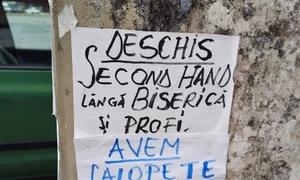 DESCHIS
SECOND HAND
LÂNGĂ BISERICĂ
ȘI PROFI.
AVEM
SALOPETE